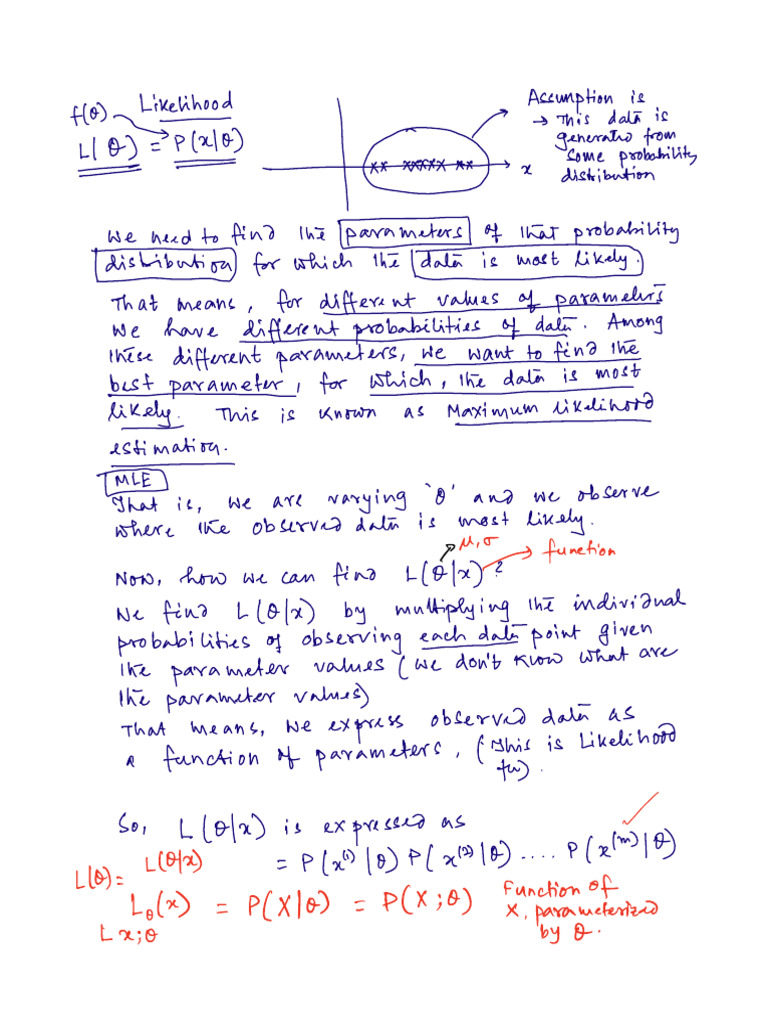 f(θ)
Likelihood
L(θ) = P(x|θ)
Assumption is
→ This data is
generated from
some probability
distribution
xx xxxxx xx
x
We need to find the parameters of that probability
distribution for which the data is most likely.
That means, for different values of parameters
we have different probabilities of data. Among
these different parameters, we want to find the
best parameter, for which, the data is most
likely. This is known as Maximum likelihood
estimation.
MLE
That is, we are varying 'θ' and we observe
where the observed data is most likely.
μ, σ
function
Now, how we can find L(θ|x)?
We find L(θ|x) by multiplying the individual
probabilities of observing each data point given
the parameter values (we don't know what are
the parameter values)
That means, we express observed data as
a function of parameters, (This is Likelihood
fn).
So, L(θ|x) is expressed as
= P(x⁽¹⁾|θ) P(x⁽²⁾|θ) .... P(x⁽ᵐ⁾|θ)
L(θ) = L(θ|x)
L_θ(x) = P(X|θ) = P(X;θ)
L x;θ
Function of
X, parameterized
by θ.